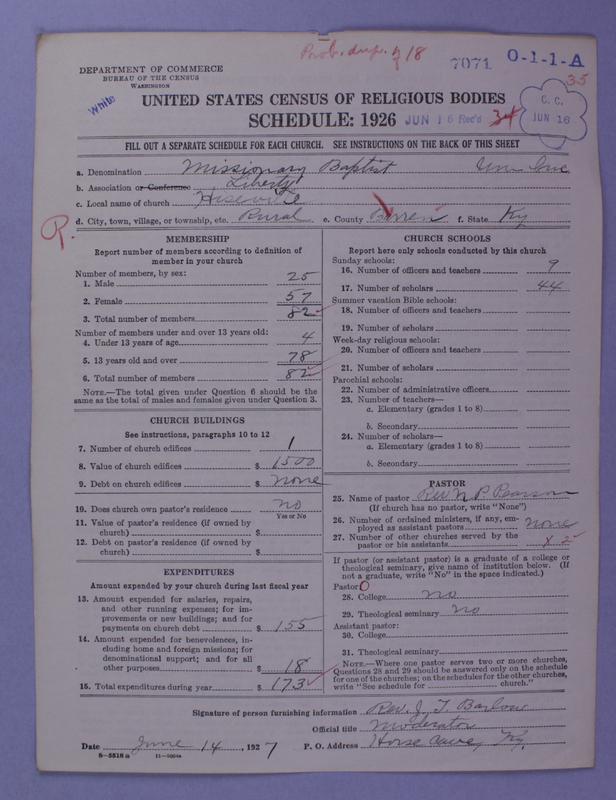 Prob. dup. of 18
7071
O-1-1-A
35
DEPARTMENT OF COMMERCE
BUREAU OF THE CENSUS
WASHINGTON
White
UNITED STATES CENSUS OF RELIGIOUS BODIES
SCHEDULE: 1926
JUN 16 Rec'd
34
C. C.
JUN 16
FILL OUT A SEPARATE SCHEDULE FOR EACH CHURCH. SEE INSTRUCTIONS ON THE BACK OF THIS SHEET
a. Denomination Missionary Baptist
b. Association or Conference Liberty
c. Local name of church Hiseville
d. City, town, village, or township, etc. Rural e. County Barren f. State Ky
R.
MEMBERSHIP
Report number of members according to definition of
member in your church
Number of members, by sex:
1. Male 25
2. Female 57
3. Total number of members 82
Number of members under and over 13 years old:
4. Under 13 years of age 4
5. 13 years old and over 78
6. Total number of members 82
NOTE.—The total given under Question 6 should be the
same as the total of males and females given under Question 3.
CHURCH BUILDINGS
See instructions, paragraphs 10 to 12
7. Number of church edifices 1
8. Value of church edifices $ 1500
9. Debt on church edifices $ none
10. Does church own pastor's residence? no
Yes or No
11. Value of pastor's residence (if owned by
church) $
12. Debt on pastor's residence (if owned by
church) $
EXPENDITURES
Amount expended by your church during last fiscal year
13. Amount expended for salaries, repairs,
and other running expenses; for im-
provements or new buildings; and for
payments on church debt $ 155
14. Amount expended for benevolences, in-
cluding home and foreign missions; for
denominational support; and for all
other purposes $ 18
15. Total expenditures during year $ 173
CHURCH SCHOOLS
Report here only schools conducted by this church
Sunday schools:
16. Number of officers and teachers 9
17. Number of scholars 44
Summer vacation Bible schools:
18. Number of officers and teachers
19. Number of scholars
Week-day religious schools:
20. Number of officers and teachers
21. Number of scholars
Parochial schools:
22. Number of administrative officers
23. Number of teachers—
a. Elementary (grades 1 to 8)
b. Secondary
24. Number of scholars—
a. Elementary (grades 1 to 8)
b. Secondary
PASTOR
25. Name of pastor Rev N. P. Pearson
(If church has no pastor, write "None")
26. Number of ordained ministers, if any, em-
ployed as assistant pastors none
27. Number of other churches served by the
pastor or his assistants x 2
If pastor (or assistant pastor) is a graduate of a college or
theological seminary, give name of institution below. (If
not a graduate, write "No" in the space indicated.)
Pastor: O
28. College no
29. Theological seminary no
Assistant pastor:
30. College
31. Theological seminary
NOTE.—Where one pastor serves two or more churches,
Questions 28 and 29 should be answered only on the schedule
for one of the churches; on the schedules for the other churches,
write "See schedule for church."
Signature of person furnishing information Rev. J. T. Barlow
Official title Moderator
Date June 14, 1927 P. O. Address Horse Cave, Ky.
8-5518a 11-9064a